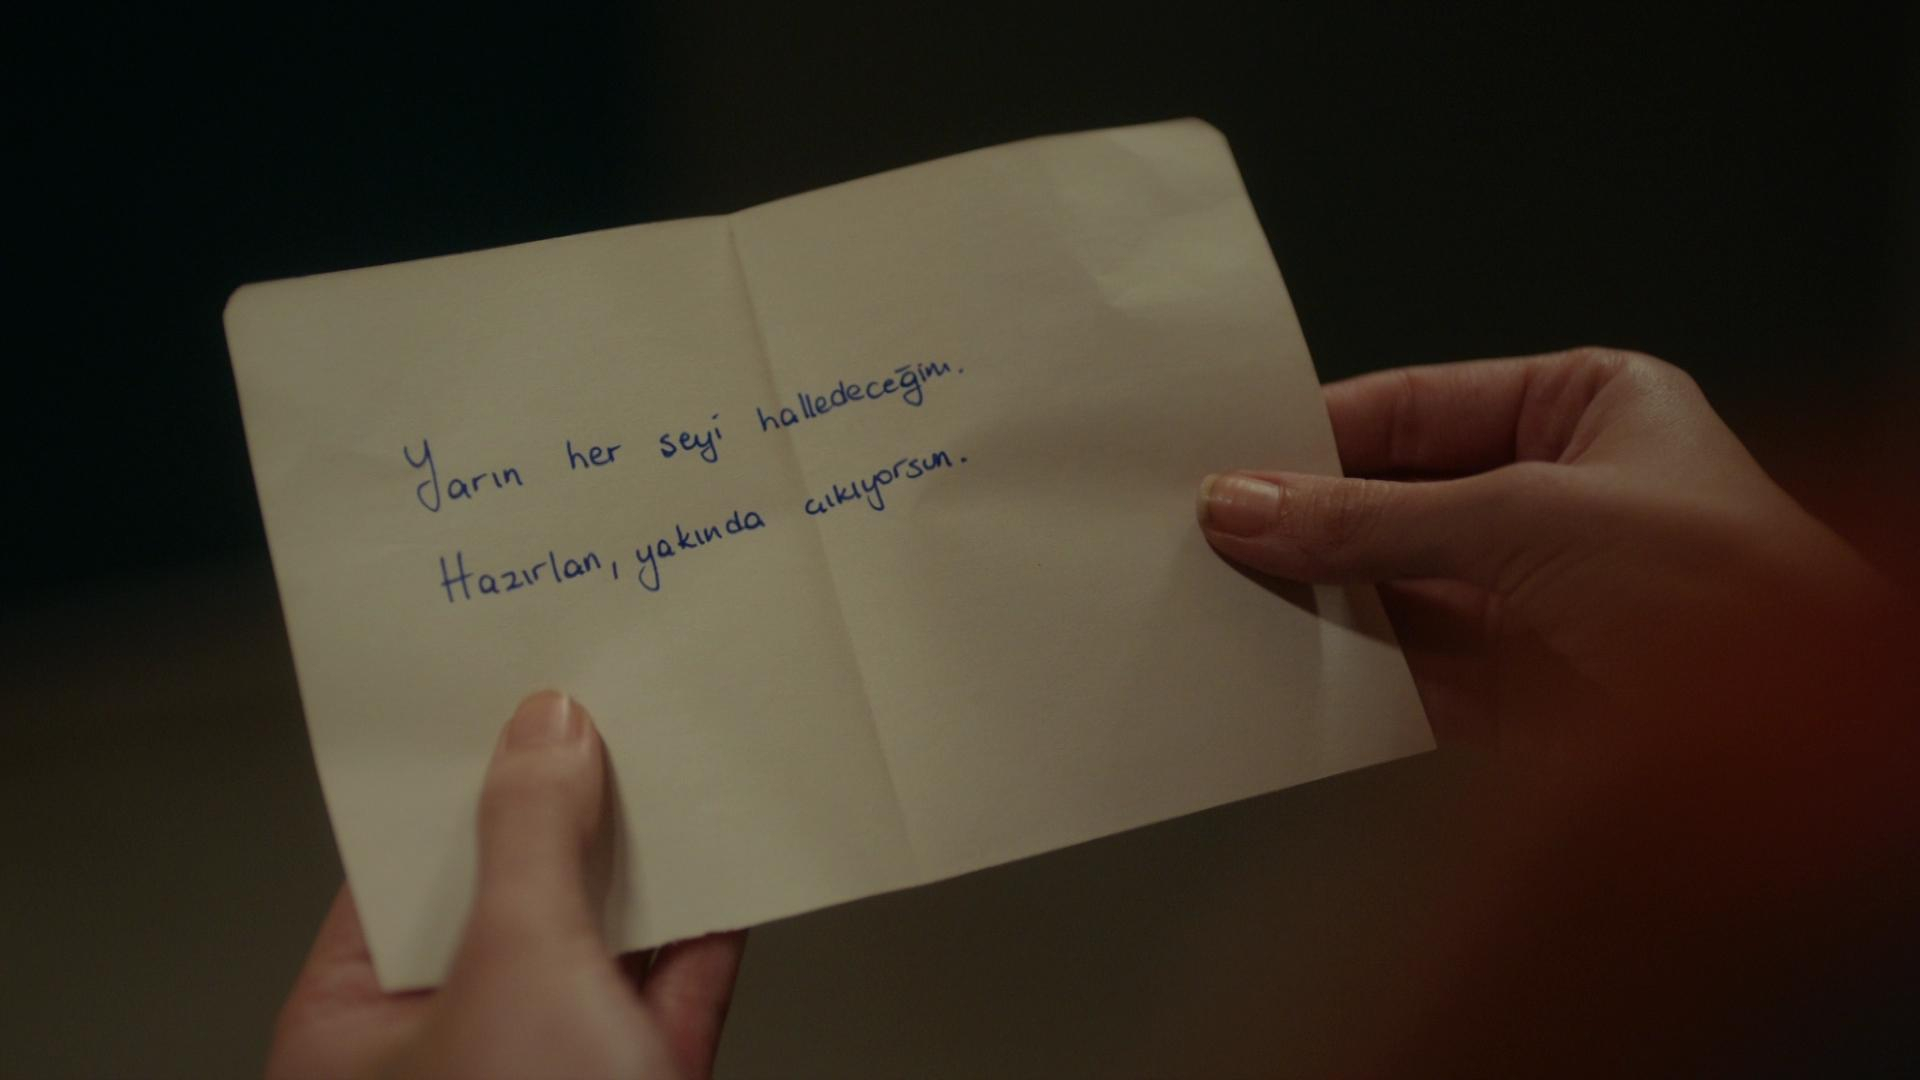 Yarın her seyi halledeceğim.
Hazırlan, yakında cıkıyorsun.